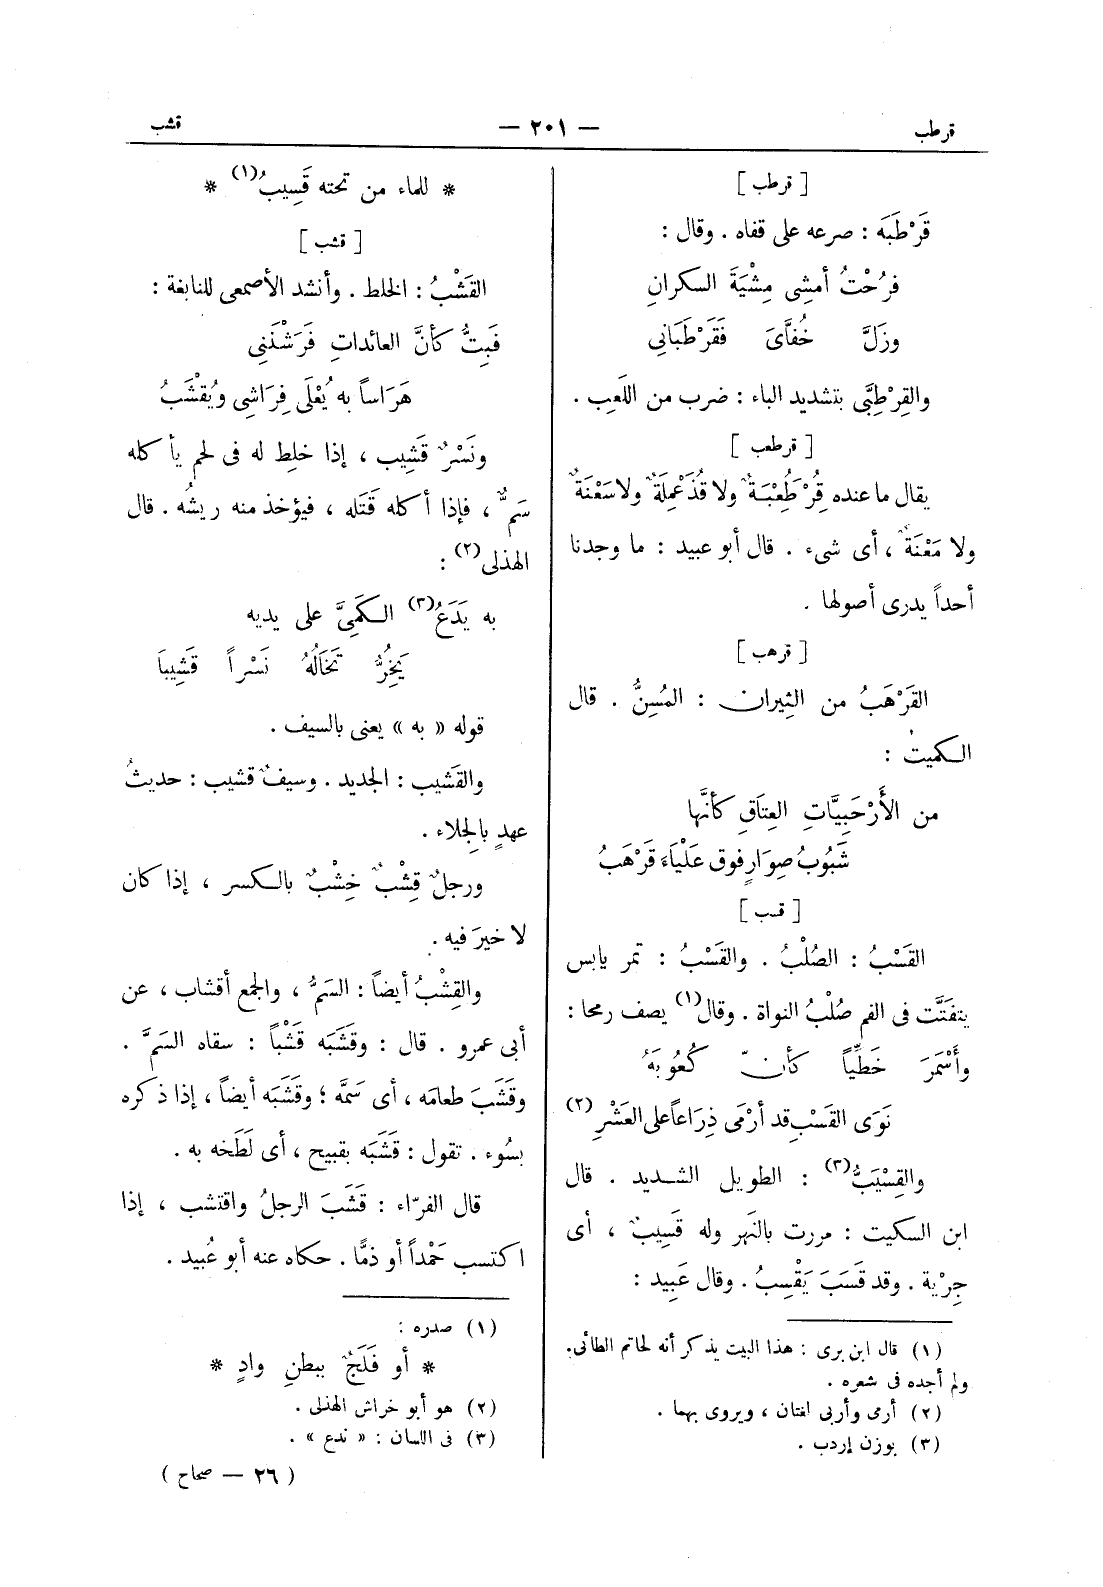 قرطب
— ٢٠١ —
قشب
[ قرطب ]
قَرْطَبَه : صرعه على قفاه . وقال :
فرُحْتُ أمشى مِشْيَةَ السكرانِ
وزَلَّ خُفَّاىَ فَقَرْطَبَانِي
والقِرْطِبَّى بتشديد الباء : ضرب من اللَعِب .
[ قرطعب ]
يقال ما عنده قِرْطَعْبَةٌ ولا قُذَعْمِلَةٌ ولا سَعْنَةٌ
ولا مَعْنَةٌ ، أى شىء . قال أبو عبيد : ما وجدنا
أحداً يدرى أصولها .
[ قرهب ]
القَرْهَبُ من الثِيران : المُسِنُّ . قال
الكميتُ :
من الأَرْحَبِيَّاتِ العِتَاقِ كأنَّها
شَبُوبُ صِوَارٍ فوق عَلْيَاءَ قَرْهَبُ
[ قسب ]
القَسْبُ : الصُلْبُ . والقَسْبُ : تمر يابس
يتفَتَّت فى الفم صُلْبُ النواة . وقال (١) يصف رمحا :
وأَسْمَرَ خَطِّيًّا كأنّ كُعُوبَهُ
نَوَى القَسْبِ قد أرْمَى ذِرَاعاً على العَشْرِ (٢)
والقِسْيَبُّ (٣) : الطويل الشديد . قال
ابن السكيت : مررت بالنَهر وله قَسِيبٌ ، أى
جِرْية . وقد قَسَبَ يَقْسِبُ . وقال عَبِيد :
(١) قال ابن برى : هذا البيت يذكر أنه لحاتم الطائى.
ولم أجده فى شعره .
(٢) أرمى وأربى لغتان ، ويروى بهما .
(٣) بوزن إردب .
* للماء من تحته قَسِيبُ (١) *
[ قشب ]
القَشْبُ : الخلط . وأنشد الأصمعى للنابغة :
فَبِتُّ كأنَّ العائداتِ فَرَشْنَنِى
هَرَاساً به يُعْلَى فِرَاشِى ويُقْشَبُ
ونَسْرٌ قَشِيب ، إذا خلِط له فى لحم يأكله
سَمٌّ ، فإذا أكله قَتَله ، فيؤخذ منه ريشُه . قال
الهذلى (٢) :
به يَدَعُ (٣) الكَمِىَّ على يديه
يَخِرُّ تَخَالُهُ نَسْراً قَشِيبَا
قوله « به » يعنى بالسيف .
والقَشيب : الجديد . وسيفٌ قشيب : حديثُ
عهدٍ بالجِلاء .
ورجلٌ قِشْبٌ خِشْبٌ بالكسر ، إذا كان
لا خيرَ فيه .
والقِشْبُ أيضاً : السَمُّ ، والجمع أقشاب ، عن
أبى عمرو . قال : وقَشَبَه قَشْباً : سقاه السَمَّ .
وقَشَبَ طعامَه ، أى سَمَّه ؛ وقَشَبَه أيضاً ، إذا ذكره
بسُوء . تقول : قَشَبَه بقبيح ، أى لَطَخه به .
قال الفرّاء : قَشَبَ الرجلُ واقتشب ، إذا
اكتسب حَمْداً أو ذمًّا . حكاه عنه أبو عُبيد .
(١) صدره :
* أو فَلَجٌ ببطنِ وادٍ *
(٢) هو أبو خراش الهذلى .
(٣) فى اللسان : « ندع » .
( ٢٦ — صحاح )